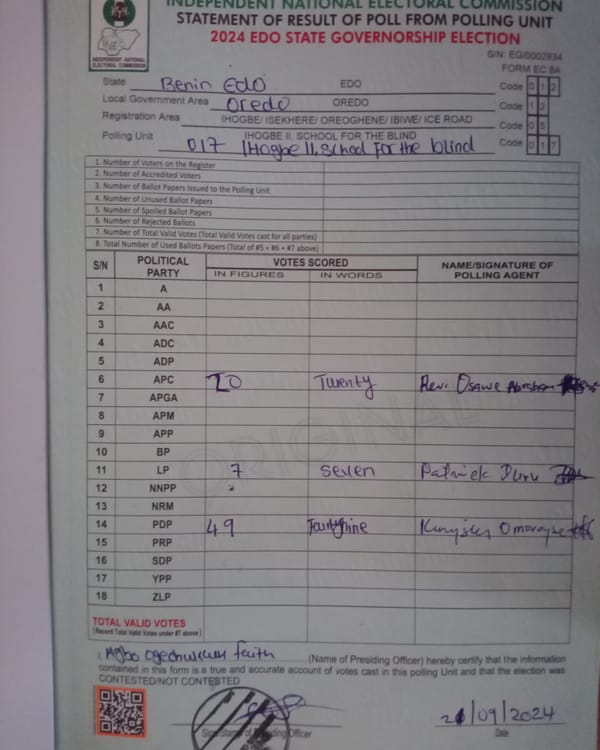 INDEPENDENT NATIONAL ELECTORAL COMMISSION
STATEMENT OF RESULT OF POLL FROM POLLING UNIT
2024 EDO STATE GOVERNORSHIP ELECTION
INEC
INDEPENDENT NATIONAL
ELECTORAL COMMISSION
S/N: EG/0002934
FORM EC 8A
State Benin Edo EDO Code 0 1 2
Local Government Area Oredo OREDO Code 1 2
Registration Area IHOGBE/ ISEKHERE/ OREOGHENE/ IBIWE/ ICE ROAD Code 0 5
IHOGBE II, SCHOOL FOR THE BLIND
Polling Unit 017 IHogbe II, School For the blind Code 0 1 7
1. Number of Voters on the Register
2. Number of Accredited Voters
3. Number of Ballot Papers Issued to the Polling Unit
4. Number of Unused Ballot Papers
5. Number of Spoiled Ballot Papers
6. Number of Rejected Ballots
7. Number of Total Valid Votes (Total Valid Votes cast for all parties)
8. Total Number of Used Ballots Papers (Total of #5 + #6 + #7 above)
S/N POLITICAL PARTY VOTES SCORED NAME/SIGNATURE OF POLLING AGENT
IN FIGURES IN WORDS
1 A
2 AA
3 AAC
4 ADC
5 ADP
6 APC 20 Twenty Rev. Osawe Abraham
7 APGA
8 APM
9 APP
10 BP
11 LP 7 Seven Patrick Duru
12 NNPP
13 NRM
14 PDP 49
15 PRP
16 SDP
17 YPP
18 ZLP
ORIGINAL
TOTAL VALID VOTES
(Record Total Valid Votes under #7 above)
I, (Name of Presiding Officer) hereby certify that the information
contained in this form is a true and accurate account of votes cast in this polling Unit and that the election was
CONTESTED/NOT CONTESTED
21/09/2024
Sign/Stamp of Presiding Officer Date